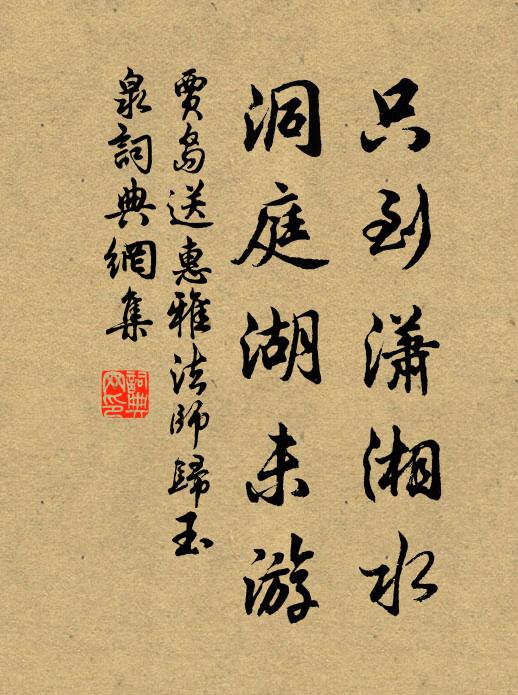 只到潇湘水
洞庭湖未游
賈島送惠雅法師歸玉
泉詞典網集
詞典
网印